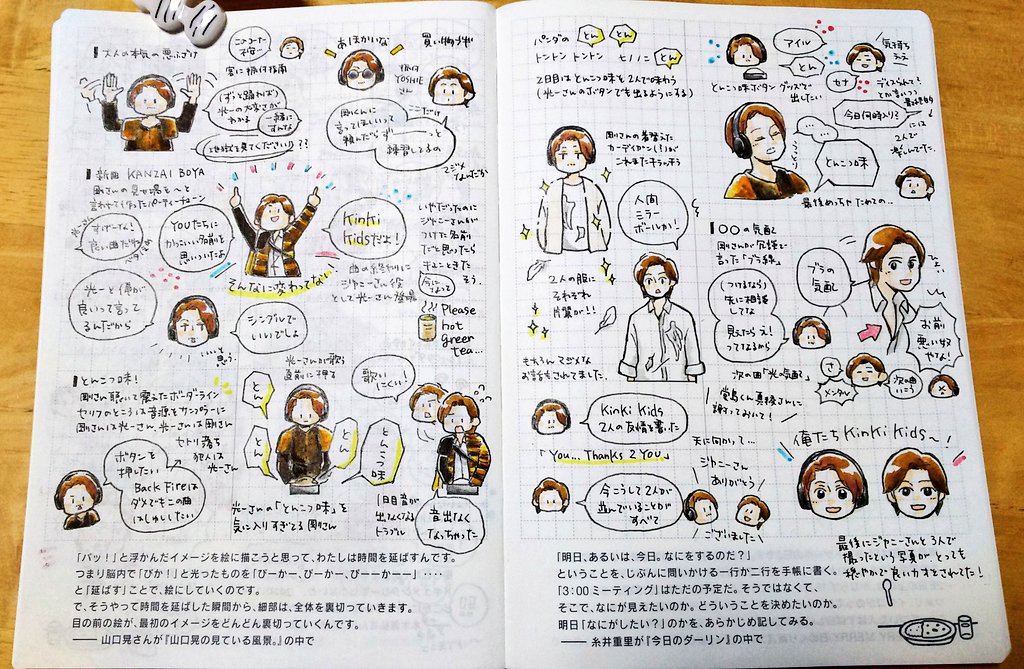 大人の本気の悪ふざけ
このコート
不安…
客に振付指南
(ずっと踊れば)
光一の大変さが
わかるよ
一緒に
すんな
あほかいな
振付
YOSHIE
さん
買い物ブギ
剛くんに
言ってほしいって
頼んだらず──っと
練習してるの
ここだけ
新曲 KANZAI BOYA
剛さんの見せ場を〜と
言われて作ったパーティーチューン
すげーな!
良い曲だわ
YOUたちに
かっこいい名前を
思いついたよ
KinKi
Kidsだよ!
そんなに変わってない
いやだったのに
ジャニーさんが
つけた名前
だと思ったら
キュンときた
そう。
今になって
曲の終わりに
ジャニーさん役
として光一さん登場
光一と俺が
良いって言って
るんだから
シングルで
いいでしょ
いいと思う。
Please
hot
green
tea...
とんこつ味!
剛さん聴いて震えたボーダーライン
セリフのところは音源をサンプラーに
剛さんは光一さん、光一さんは剛さん
セトリ落ち
犯人は
光一さん
ボタンを
押したい
Back Fireは
ダメでもこの曲
はしゅしたい
光一さんが歌う
直前に押す
とん
とん
とん
とんこつ味
歌い
にくい!
光一さんの「とんこつ味」を
気に入りすぎてる剛さん
1日目音が
出なくなる
トラブル
音出なく
なっちゃった
「パッ!」と浮かんだイメージを絵に描こうと思って、わたしは時間を延ばすんです。
つまり脳内で「ぴか!」と光ったものを「ぴーかー、ぴーかー、ぴーーかーー」‥‥
と「延ばす」ことで、絵にしていくのです。
で、そうやって時間を延ばした瞬間から、細部は、全体を裏切っていきます。
目の前の絵が、最初のイメージをどんどん裏切っていくんです。
── 山口晃さんが『山口晃の見ている風景。』の中で
パンダの とん とん
トントン トントン ヒノノニ とん
2日目はとんこつ味を2人で味わう
(光一さんのボタンでも出るようにする)
アイル
とん
セナ
気持ち
ちがえ
とんこつ味ボタングッズで
出したい
今日何時入り?
…
とんこつ味
うっとり
最後めっちゃためての…
最終的
には
2人で
楽しんでた。
剛さんの着替えた
カーディガン(?)が
これまたキラッキラ
人間
ミラー
ボールか!
2人の服に
それぞれ
片翼が!!
もちろんマジメな
お話もされてました。
〇〇の気配
剛さんが冗談で
言った「ブラ線」
ブラの
気配
(つけるなら)
先に相談
してな
見えたらえ!
ってなるから
ひょい
お前
悪い奴
やな!
次の曲「光の気配」
さ
メンタル
次の曲
いこう
堂島くん真後さんに
謝っておいて!
KinKi Kids
2人の友情を書いた
「You... Thanks 2 You」
今こうして2人が
並んでいることが
すべて
天に向かって…
ジャニーさん
ありがとう
ございました
俺たちKinKi Kids〜!
最後にジャニーさんと3人で
撮ったという写真がとっても
穏やかで良いカオされてた!
「明日、あるいは、今日。なにをするのだ?」
ということを、じぶんに問いかける一行か二行を手帳に書く。
「3:00ミーティング」はただの予定だ。そうではなくて、
そこで、なにが見えたいのか。どういうことを決めたいのか。
明日「なにがしたい?」のかを、あらかじめ記してみる。
── 糸井重里が『今日のダーリン』の中で